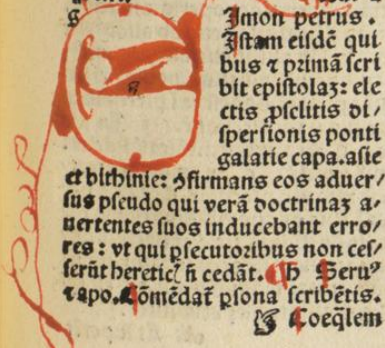 Imon petrus.
Istam eisdē qui
bus ⁊ primā scri
bit epistolaꝫ: ele
ctis ꝓselitis di/
spersionis ponti
galatie capa. asie
et bithinie: ꝯfirmans eos aduer/
sus pseudo qui verā doctrinaꝫ a/
uertentes suos inducebant erro/
res: vt qui ꝑsecutoribus non ces/
serūt heretic̩ ñ cedāt. ¶ Seruꝰ
⁊ apo. Cōmēdat̄ ꝑsona scribētis.
Coeq̄lem